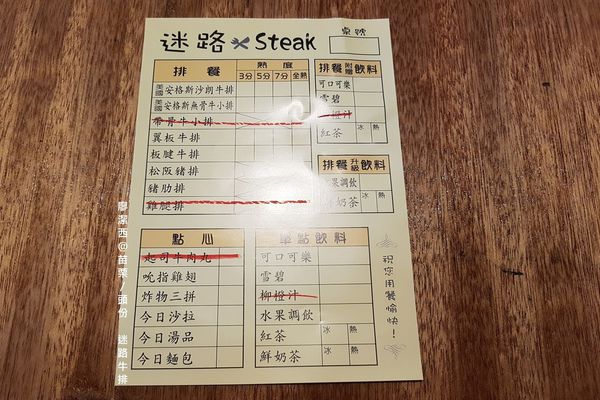 迷路 Steak
桌號
排餐 熟度
3分 5分 7分 全熟
美國 安格斯沙朗牛排
美國 安格斯無骨牛小排
帶骨牛小排
翼板牛排
板腱牛排
松阪豬排
豬肋排
雞腿排
排餐附贈飲料
可口可樂
雪碧
橙汁
紅茶 冰 熱
排餐升級飲料
果調飲 冰 熱
鮮奶茶
點心
起司牛肉丸
吮指雞翅
炸物三拼
今日沙拉
今日湯品
今日麵包
單點飲料
可口可樂
雪碧
柳橙汁
水果調飲
紅茶 冰 熱
鮮奶茶 冰 熱
祝您用餐愉快！
廖潔西@苗栗/頭份 迷路牛排